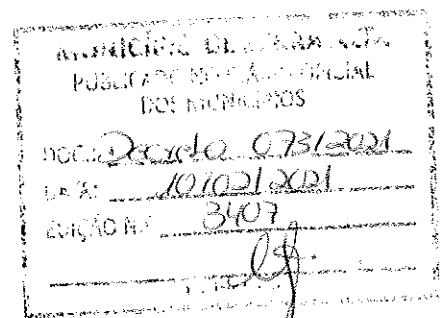 MUNICÍPIO DE
PUBLICADO NO DIÁRIO OFICIAL
DOS MUNICÍPIOS
DOC.: Decreto 073/2021
DATA: 10/02/2021
EDIÇÃO Nº 3407